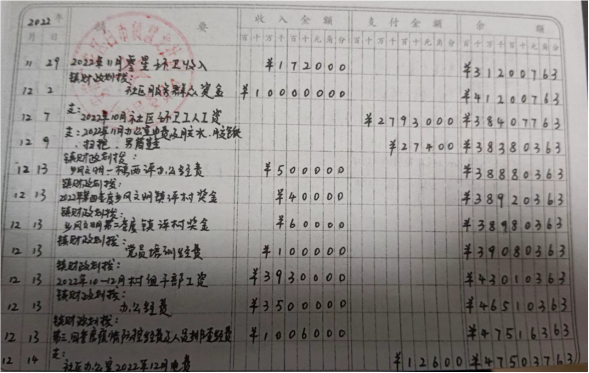 2022年 摘 要 收入金额 支付金额 余 额
月 日 百十万千百十元角分 百十万千百十元角分 百十万千百十元角分
11 29 2022年11月零星环卫收入 ¥172000 ¥31200763
镇财政划拨:
12 2 社区服务群众奖金 ¥10000000 ¥41200763
支:
12 7 2022年10月社区环卫工人工资 ¥2793000 ¥38407763
支:2022年11月办公室电费
12 9 扫把、 ¥27400 ¥38380363
镇财政划拨:
12 13 乡风文明一 办公经费 ¥500000 ¥38880363
镇财政划拨:
12 13 2022年第四季度乡风文明镇评村奖金 ¥40000 ¥38920363
镇财政划拨:
12 13 乡风文明第二季度镇评村奖金 ¥60000 ¥38980363
镇财政划拨:
12 13 党员培训经费 ¥100000 ¥39080363
镇财政划拨:
12 13 2022年10-12月村组干部工资 ¥3930000 ¥43010363
镇财政划拨:
12 13 办公经费 ¥3500000 ¥46510363
镇财政划拨:
12 13 第三、四季度 经费 人员 经费 ¥1006000 ¥47516363
支:
12 14 社区办公室2022年12月电费 ¥12600 ¥47503763